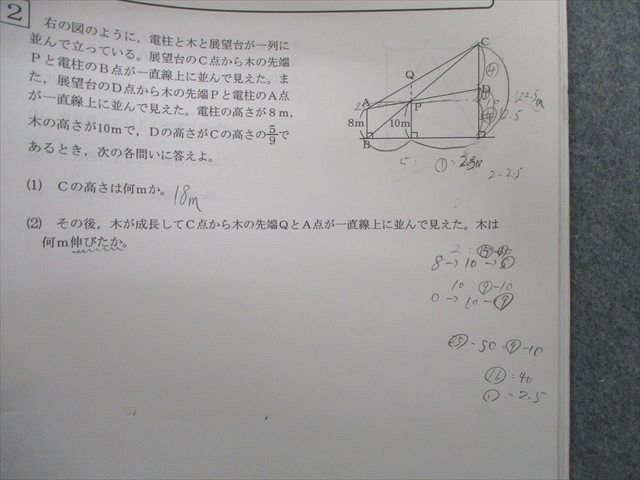 2
右の図のように，電柱と木と展望台が一列に
並んで立っている。展望台のC点から木の先端
Pと電柱のB点が一直線上に並んで見えた。ま
た，展望台のD点から木の先端Pと電柱のA点
が一直線上に並んで見えた。電柱の高さが8m，
木の高さが10mで，Dの高さがCの高さの5/9で
あるとき，次の各問いに答えよ。
C
Q
D
A
P
8m
10m
B
①=2.5m
2=2.5
(1) Cの高さは何mか。 18m
(2) その後，木が成長してC点から木の先端QとA点が一直線上に並んで見えた。木は
何m伸びたか。
8→10→⑤
10:⑨-10
0→10→⑨
㉕-50=⑨-10
⑯=40
①=2.5